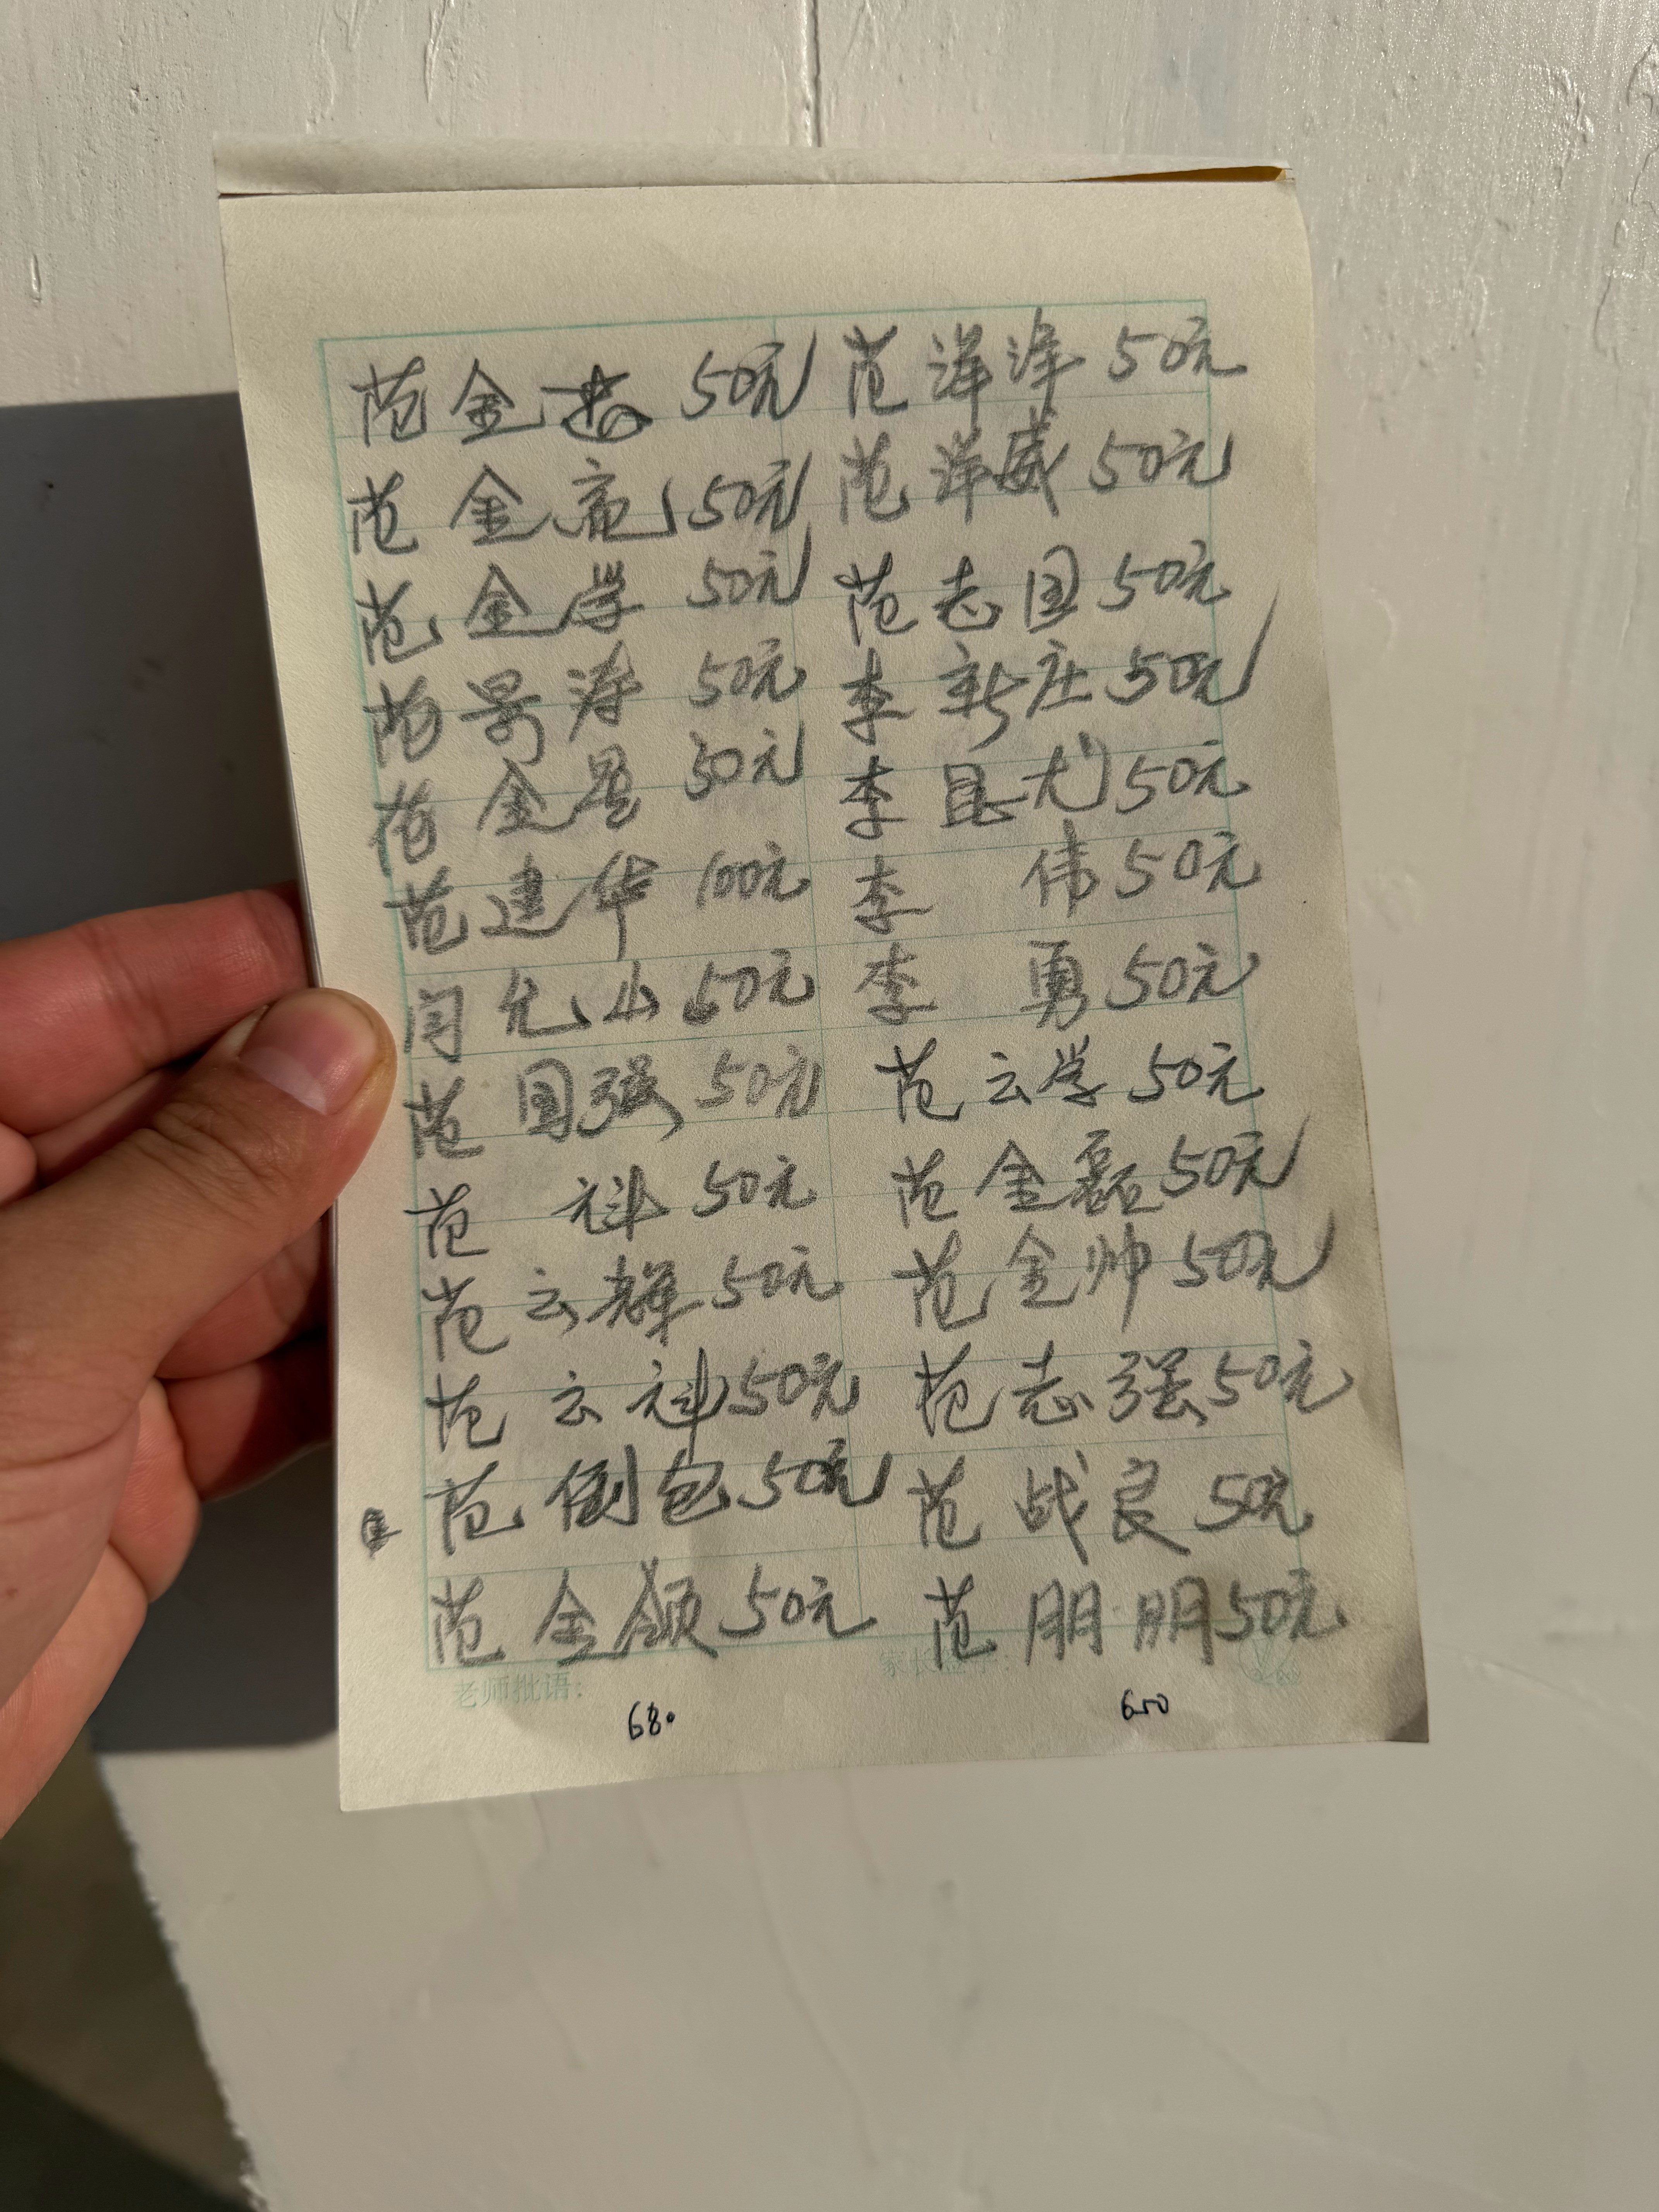 范金 50元
范金亮 50元
范金学 50元
范景涛 50元
范金星 30元
范建华 100元
闫允山 50元
范国强 50元
范 科 50元
范云辉 50元
范云科 50元
范倒包 50元
范金领 50元
范洋洋 50元
范洋威 50元
范志国 50元
李新庄 50元
李 50元
李 伟 50元
李 勇 50元
范云学 50元
范金磊 50元
范金帅 50元
范志强 50元
范战良 50元
范朋朋 50元
老师批语：
家长签字：
680
650